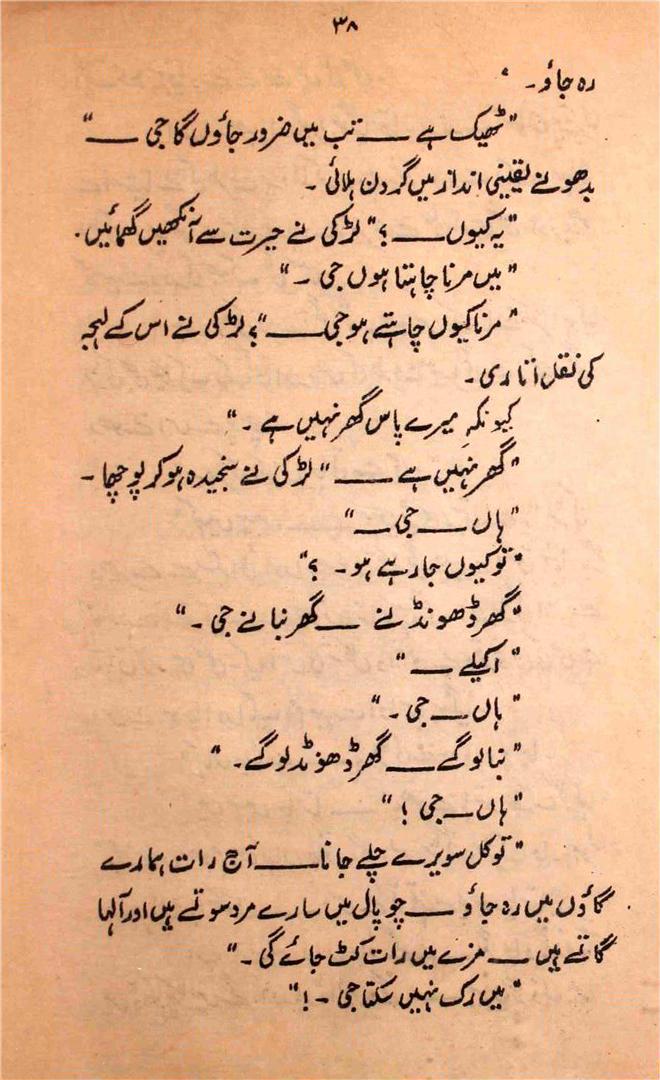 ۳۸
رہ جاؤ۔
"ٹھیک ہے ــــ تب میں ضرور جاؤں گا جی ــــ"
بدھو نے یقینی انداز میں گردن ہلائی ۔
"یہ کیوں ــــ؟" لڑکی نے حیرت سے آنکھیں گھمائیں۔
"میں مرنا چاہتا ہوں جی ۔"
"مرنا کیوں چاہتے ہو جی ــــ"؟ لڑکی نے اس کے لہجہ
کی نقل اتاری۔
کیونکہ میرے پاس گھر نہیں ہے ۔"
"گھر نہیں ہے ــــ" لڑکی نے سنجیدہ ہو کر پوچھا ۔
"ہاں ــــ جی ــــ"
"تو کیوں جا رہے ہو۔ ؟"
"گھر ڈھونڈنے ــــ گھر بنانے جی ۔"
"اکیلے ــــ"
"ہاں ــــ جی ۔"
"بنا لو گے ــــ گھر ڈھونڈ لو گے۔"
"ہاں ــــ جی !"
"تو کل سویرے چلے جانا ــــ آج رات ہمارے
گاؤں میں رہ جاؤ ــــ چوپال میں سارے مرد سوتے ہیں اور آلہا
گاتے ہیں ــــ مزے میں رات کٹ جائے گی ۔"
"میں رک نہیں سکتا جی ۔!"